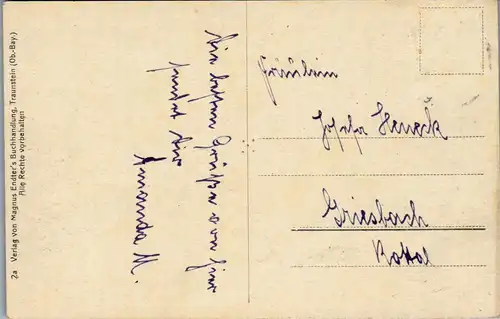 2a Verlag von Magnus Endter's Buchhandlung, Traunstein (Ob.-Bay.)
Alle Rechte vorbehalten
Die besten Grüße von hier
sendet Dir
Amanda M.
Fräulein
Josefa Heneck
Griesbach
Rottal